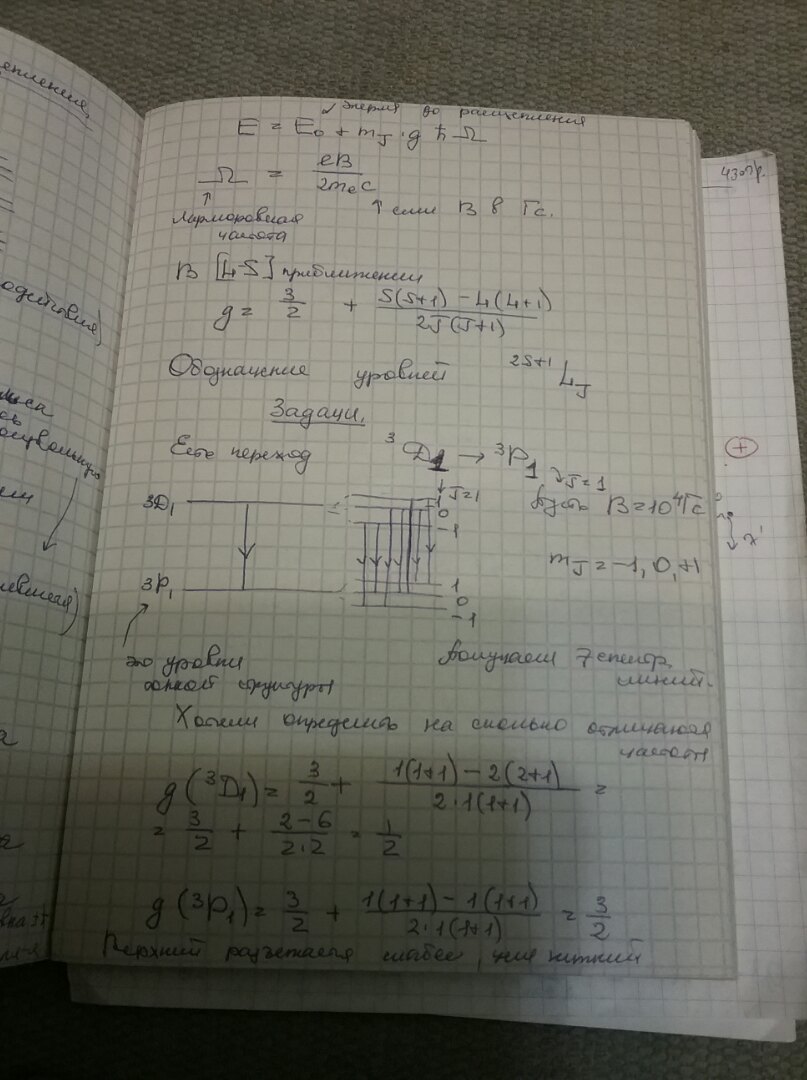 энергия до расщепления
E = E₀ + m_J · g ħ Ω
Ω = eB / 2mₑc
Ларморовская частота
↑ если B в Гс.
В [L-S] приближении
g = 3/2 + (S(S+1) - L(L+1)) / 2J(J+1)
Обозначение уровней ²ˢ⁺¹L_J
Задачи.
Есть переход ³D₁ → ³P₁
↓ J=1
↘ J=1
Пусть B = 10⁴ Гс
3D₁
1
0
-1
m_J = -1, 0, +1
3P₁
1
0
-1
это уровни
тонкой структуры
Получаем 7 спектр.
линий.
Хотели определить на сколько отличаются
частоты
g(³D₁) = 3/2 + (1(1+1) - 2(2+1)) / 2·1(1+1) =
= 3/2 + (2-6) / 2·2 = 1/2
g(³P₁) = 3/2 + (1(1+1) - 1(1+1)) / 2·1(1+1) = 3/2
Верхний разъезжается слабее, чем нижний